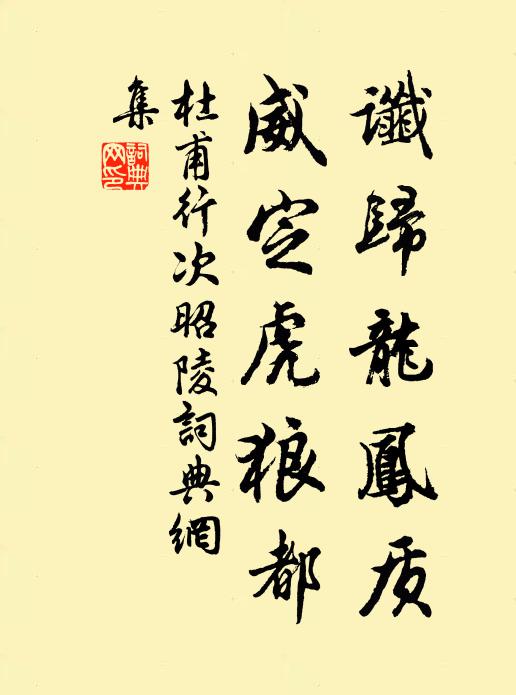 讖歸龍鳳质
威定虎狼都
杜甫行次昭陵詞典網
集
詞典网印